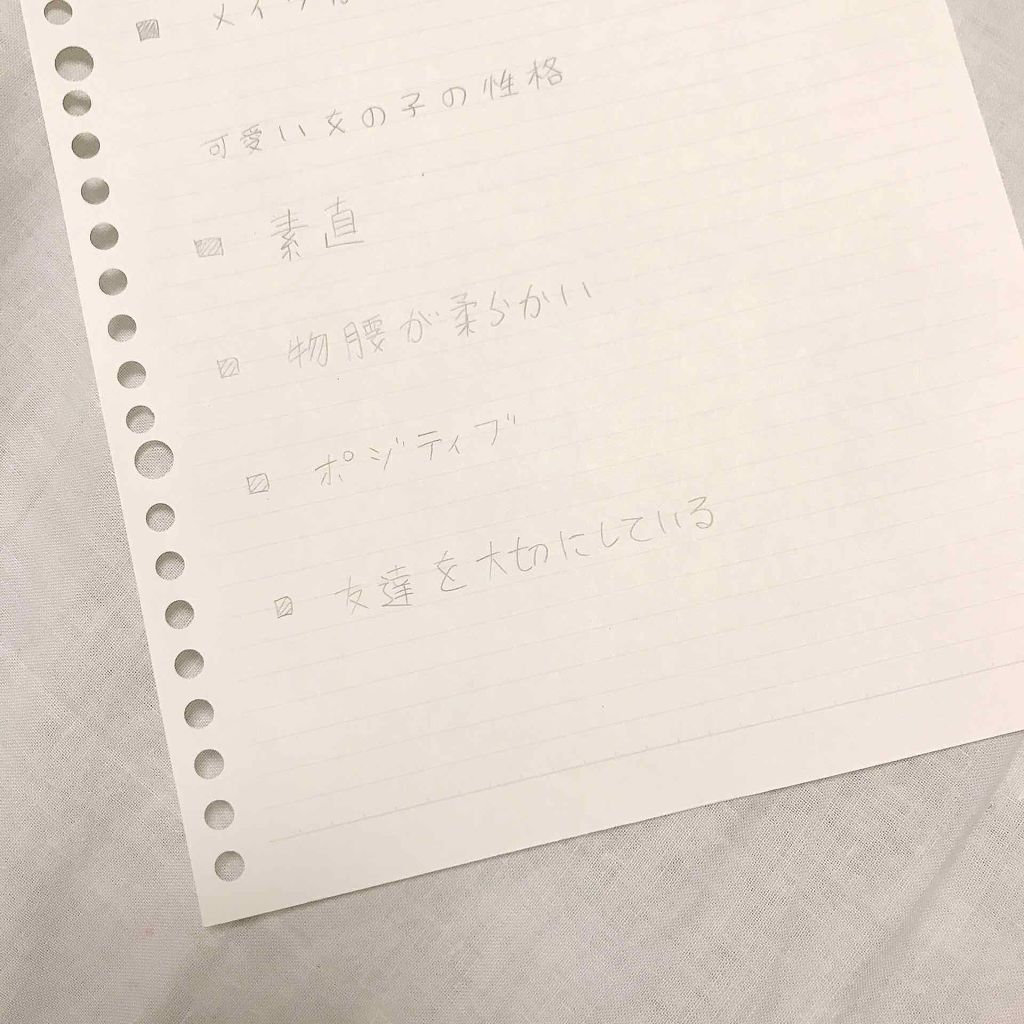 可愛い女の子の性格
素直
物腰が柔らかい
ポジティブ
友達を大切にしている